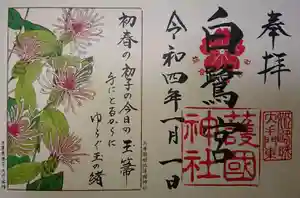 奉拝
白鷺宮
護國
神社
令和四年一月一日
初春の初子の今日の玉箒
手にとるからに
ゆらく玉の緒